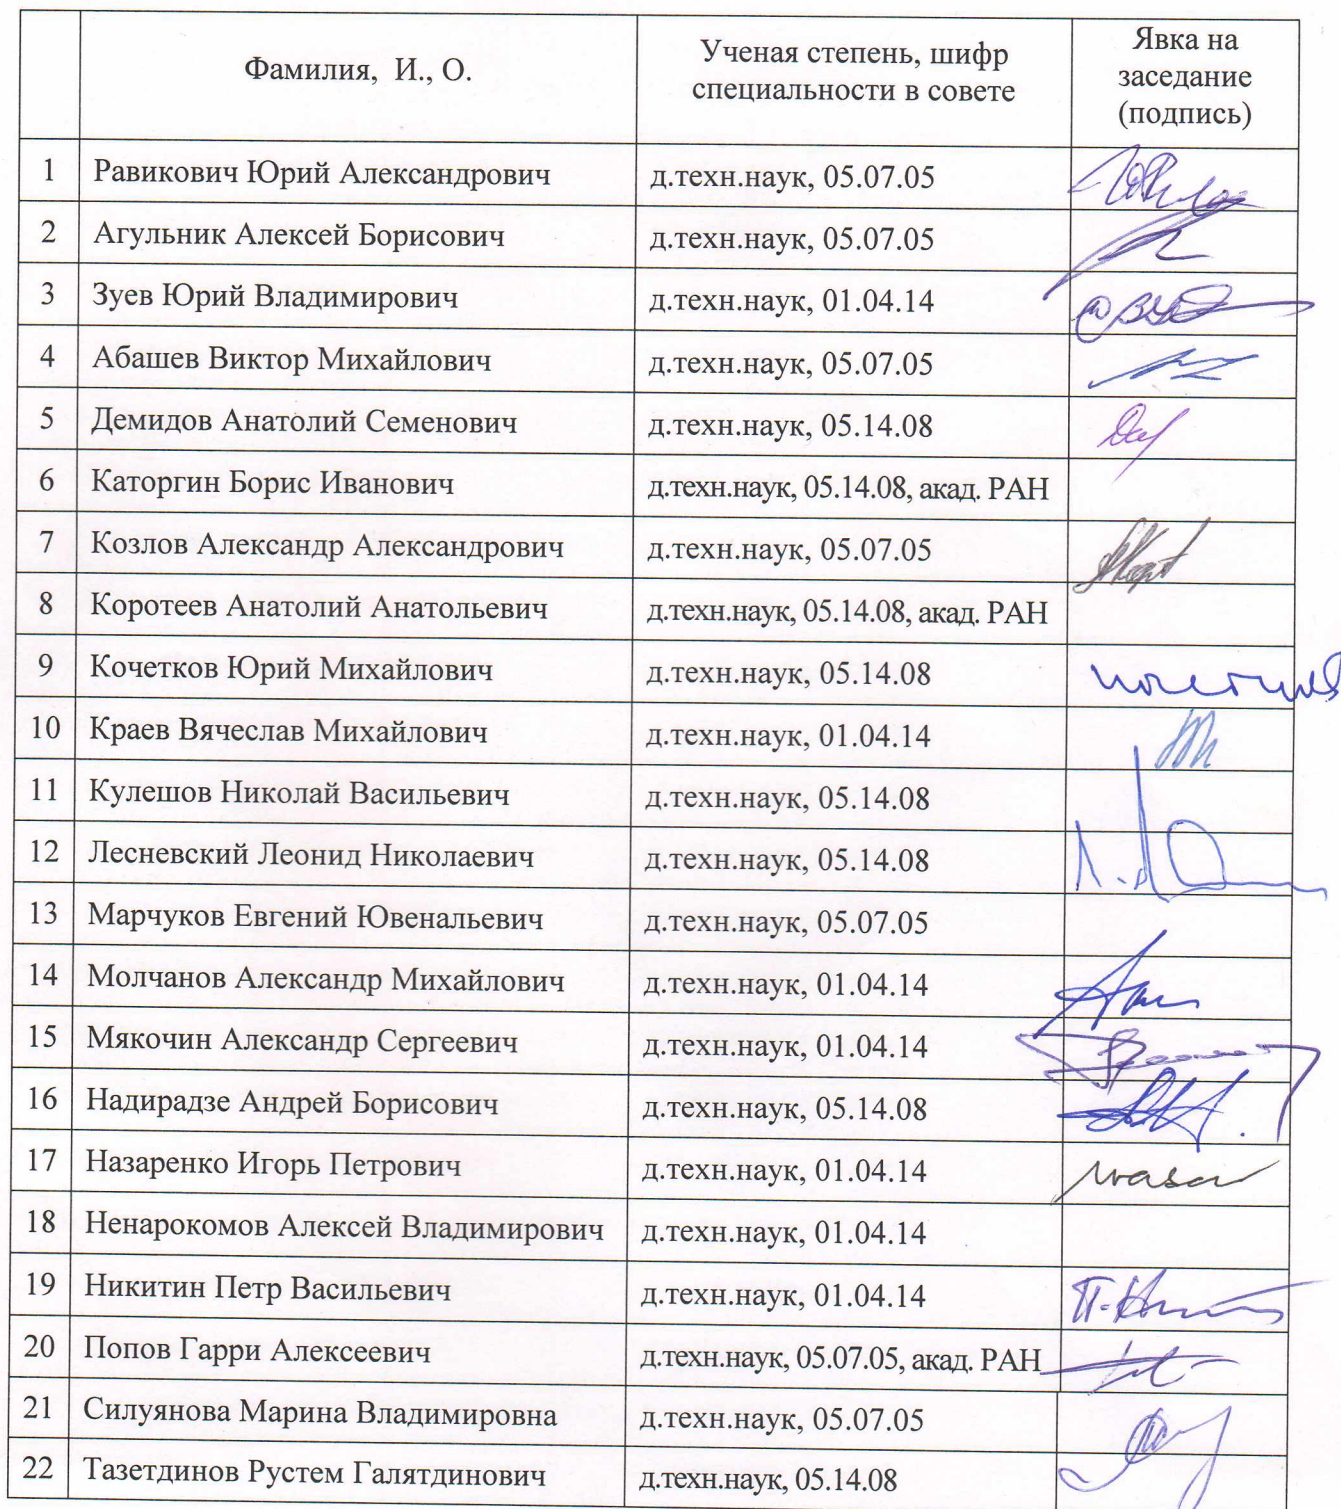 Фамилия, И., О.
Ученая степень, шифр
специальности в совете
Явка на
заседание
(подпись)
1 Равикович Юрий Александрович д.техн.наук, 05.07.05
2 Агульник Алексей Борисович д.техн.наук, 05.07.05
3 Зуев Юрий Владимирович д.техн.наук, 01.04.14
4 Абашев Виктор Михайлович д.техн.наук, 05.07.05
5 Демидов Анатолий Семенович д.техн.наук, 05.14.08
6 Каторгин Борис Иванович д.техн.наук, 05.14.08, акад. РАН
7 Козлов Александр Александрович д.техн.наук, 05.07.05
8 Коротеев Анатолий Анатольевич д.техн.наук, 05.14.08, акад. РАН
9 Кочетков Юрий Михайлович д.техн.наук, 05.14.08
10 Краев Вячеслав Михайлович д.техн.наук, 01.04.14
11 Кулешов Николай Васильевич д.техн.наук, 05.14.08
12 Лесневский Леонид Николаевич д.техн.наук, 05.14.08
13 Марчуков Евгений Ювенальевич д.техн.наук, 05.07.05
14 Молчанов Александр Михайлович д.техн.наук, 01.04.14
15 Мякочин Александр Сергеевич д.техн.наук, 01.04.14
16 Надирадзе Андрей Борисович д.техн.наук, 05.14.08
17 Назаренко Игорь Петрович д.техн.наук, 01.04.14
18 Ненарокомов Алексей Владимирович д.техн.наук, 01.04.14
19 Никитин Петр Васильевич д.техн.наук, 01.04.14
20 Попов Гарри Алексеевич д.техн.наук, 05.07.05, акад. РАН
21 Силуянова Марина Владимировна д.техн.наук, 05.07.05
22 Тазетдинов Рустем Галятдинович д.техн.наук, 05.14.08